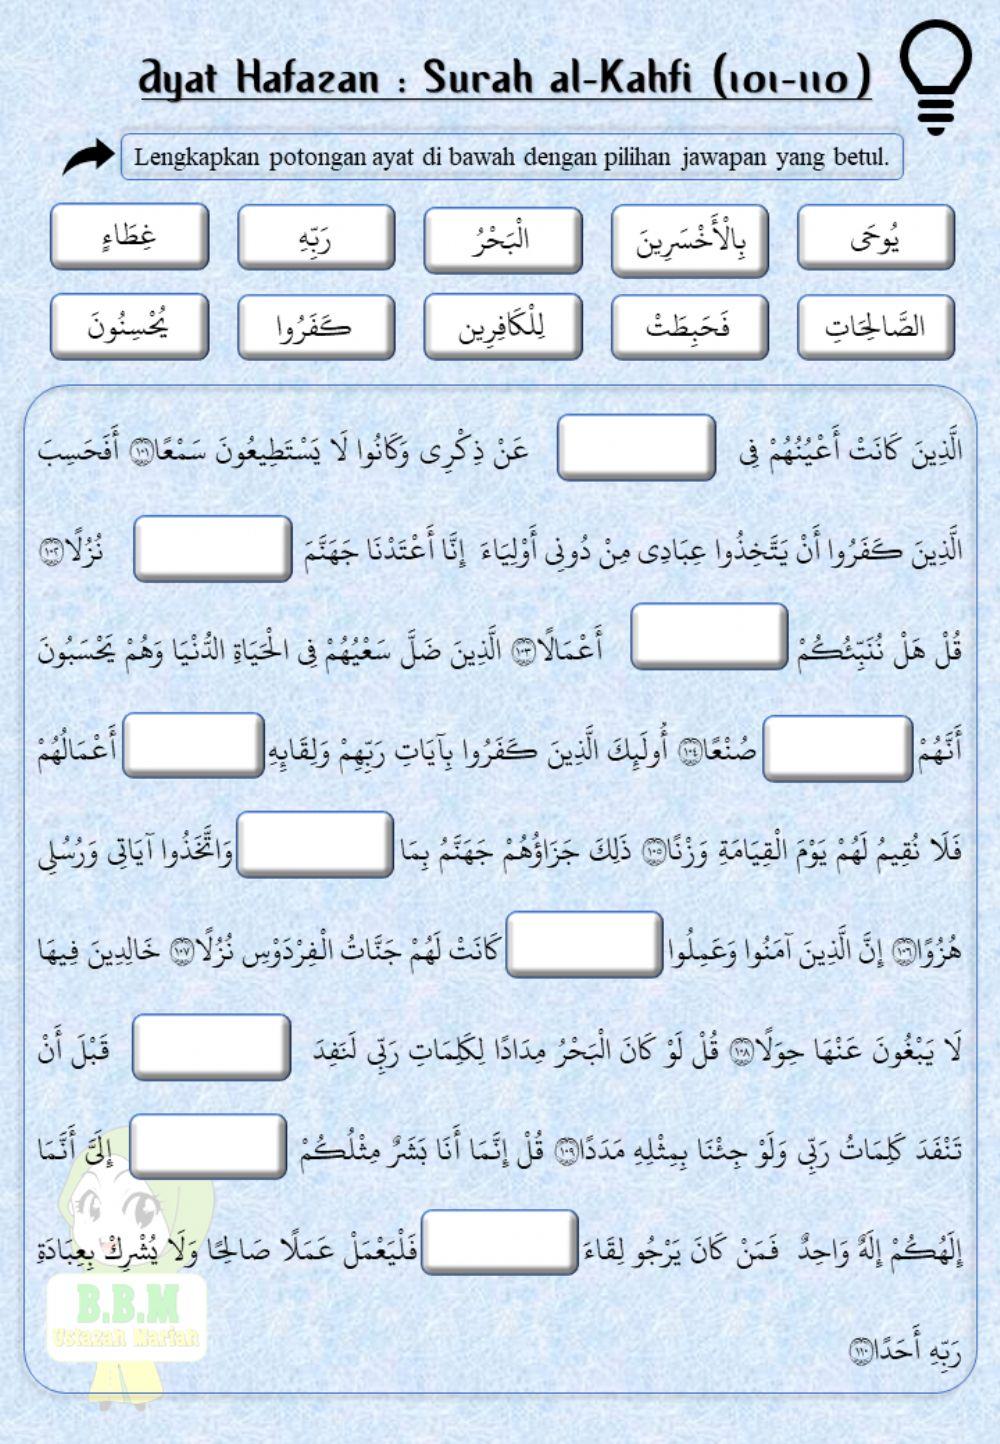 Ayat Hafazan : Surah al-Kahfi (101-110)
Lengkapkan potongan ayat di bawah dengan pilihan jawapan yang betul.
يُوحَى بِالْأَخْسَرِينَ الْبَحْرُ رَبِّهِ غِطَاءٍ
الصَّالِحَاتِ فَحَبِطَتْ لِلْكَافِرِين كَفَرُوا يُحْسِنُونَ
الَّذِينَ كَانَتْ أَعْيُنُهُمْ فِى عَنْ ذِكْرِى وَكَانُوا لَا يَسْتَطِيعُونَ سَمْعًا ١٠١ أَفَحَسِبَ
الَّذِينَ كَفَرُوا أَنْ يَتَّخِذُوا عِبَادِى مِنْ دُونِى أَوْلِيَاءَ إِنَّا أَعْتَدْنَا جَهَنَّمَ نُزُلًا ١٠٢
قُلْ هَلْ نُنَبِّئُكُمْ أَعْمَالًا ١٠٣ الَّذِينَ ضَلَّ سَعْيُهُمْ فِى الْحَيَاةِ الدُّنْيَا وَهُمْ يَحْسَبُونَ
أَنَّهُمْ صُنْعًا ١٠٤ أُولَئِكَ الَّذِينَ كَفَرُوا بِآيَاتِ رَبِّهِمْ وَلِقَابِهِ أَعْمَالُهُمْ
فَلَا نُقِيمُ لَهُمْ يَوْمَ الْقِيَامَةِ وَزْنًا ١٠٥ ذَلِكَ جَزَاؤُهُمْ جَهَنَّمُ بِمَا وَاتَّخَذُوا آيَاتِى وَرُسُلِى
هُزُوًا ١٠٦ إِنَّ الَّذِينَ آمَنُوا وَعَمِلُوا كَانَتْ لَهُمْ جَنَّاتُ الْفِرْدَوْسِ نُزُلًا ١٠٧ خَالِدِينَ فِيهَا
لَا يَبْغُونَ عَنْهَا حِوَلًا ١٠٨ قُلْ لَوْ كَانَ الْبَحْرُ مِدَادًا لِكَلِمَاتِ رَبِّى لَنَفِدَ قَبْلَ أَنْ
تَنْفَدَ كَلِمَاتُ رَبِّى وَلَوْ جِئْنَا بِمِثْلِهِ مَدَدًا ١٠٩ قُلْ إِنَّمَا أَنَا بَشَرٌ مِثْلُكُمْ إِلَىَّ أَنَّمَا
إِلَهُكُمْ إِلَهٌ وَاحِدٌ فَمَنْ كَانَ يَرْجُو لِقَاءَ فَلْيَعْمَلْ عَمَلًا صَالِحًا وَلَا يُشْرِكْ بِعِبَادَةِ
رَبِّهِ أَحَدًا ١١٠
B.B.M
Ustazah Marfah